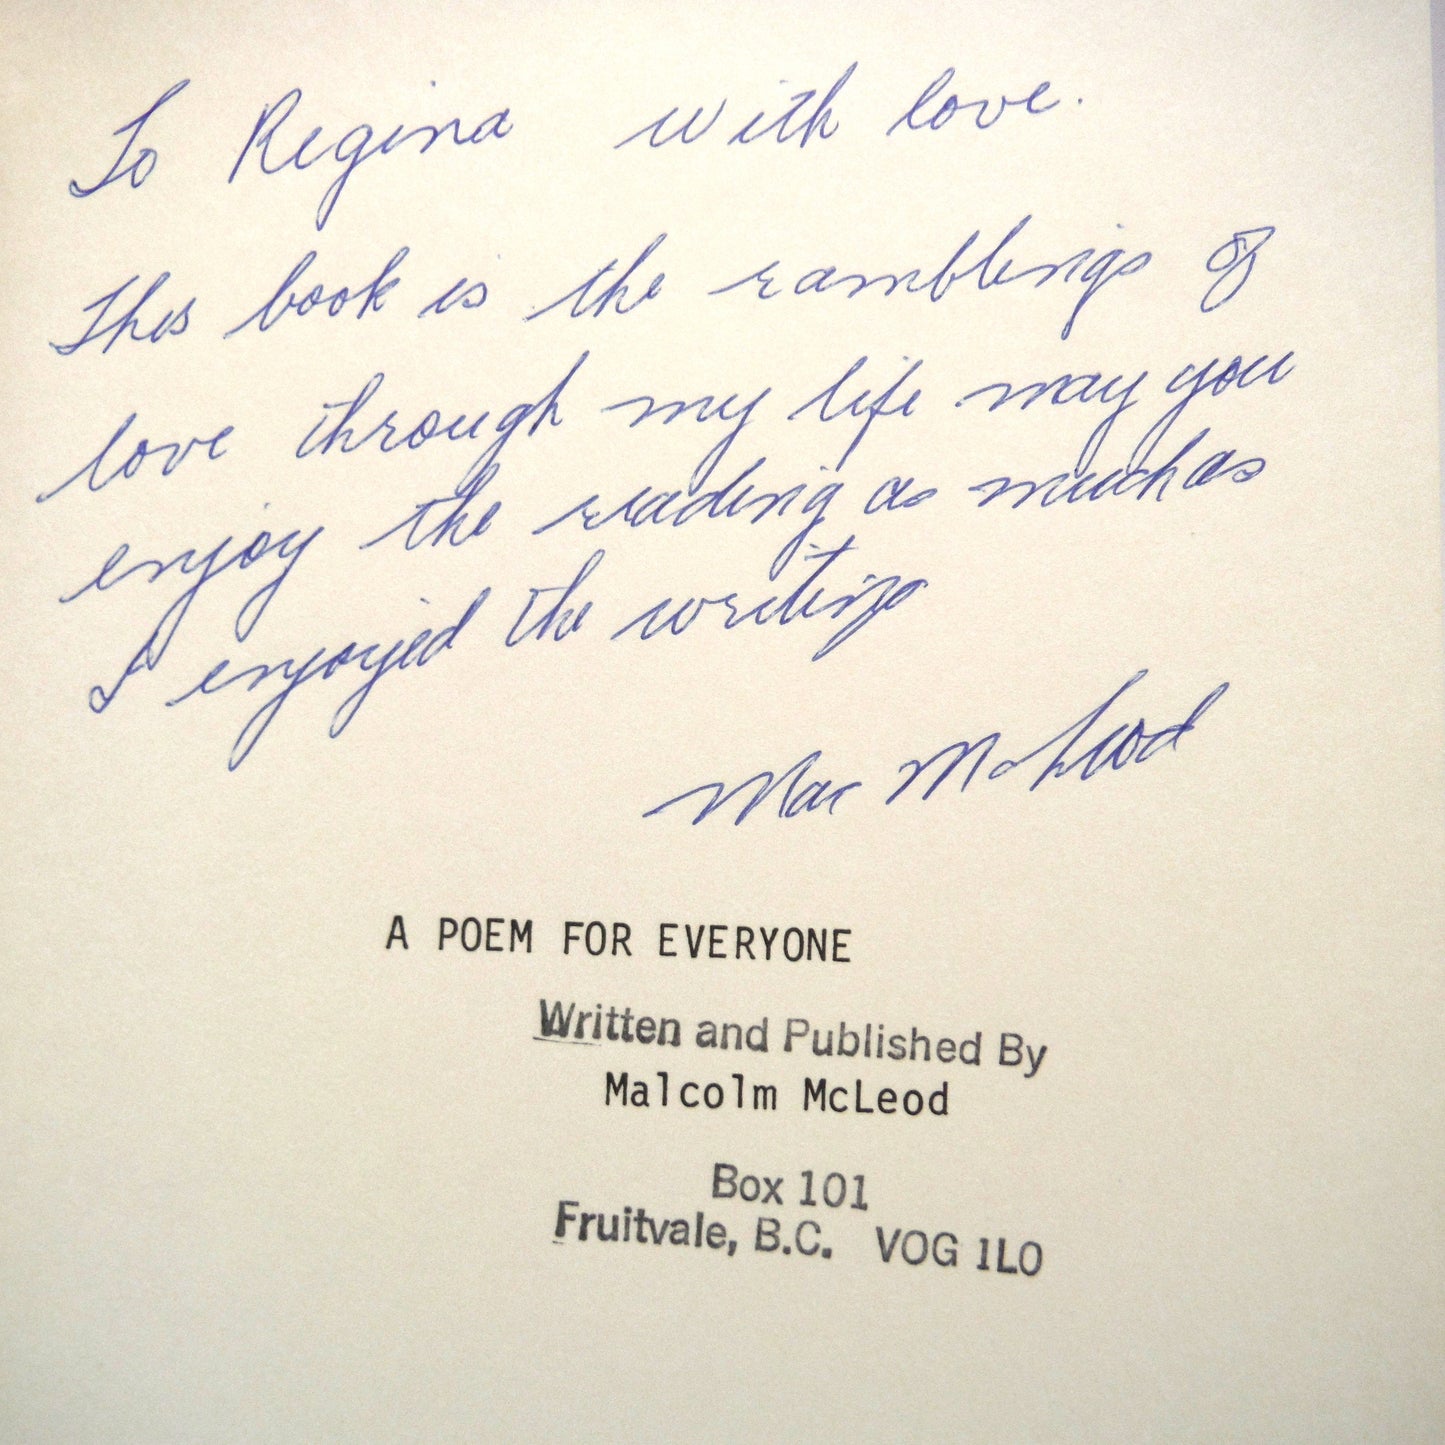 To Regina with love.
This book is the ramblings of
love through my life may you
enjoy the reading as much as
I enjoyed the writing
Mac McLeod
A POEM FOR EVERYONE
Written and Published By
Malcolm McLeod
Box 101
Fruitvale, B.C. VOG 1LO